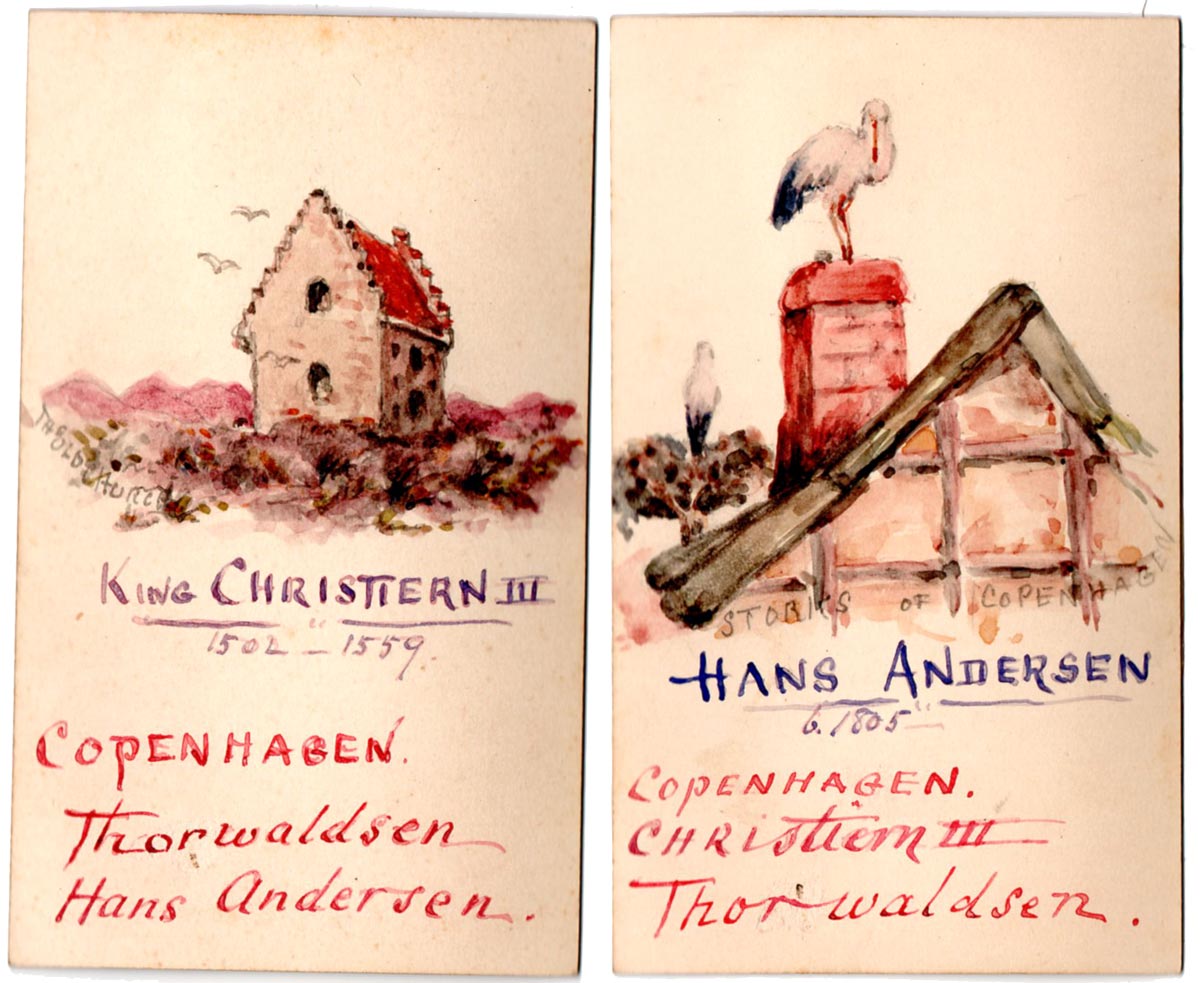 THE OLD CHURCH
KING CHRISTIERN III
1502 – 1559.
COPENHAGEN.
Thorwaldsen
Hans Andersen.
STORKS OF COPENHAGEN
HANS ANDERSEN
b. 1805 –
COPENHAGEN.
CHRIStiern III
Thorwaldsen.